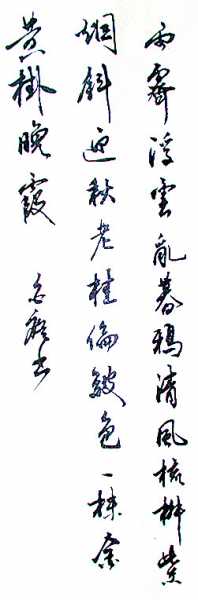 雨霽浮雲亂暮鴉清風梳柳紫
烟斜迎秋老桂偷皴色一抹金
黄掛晚霞 書